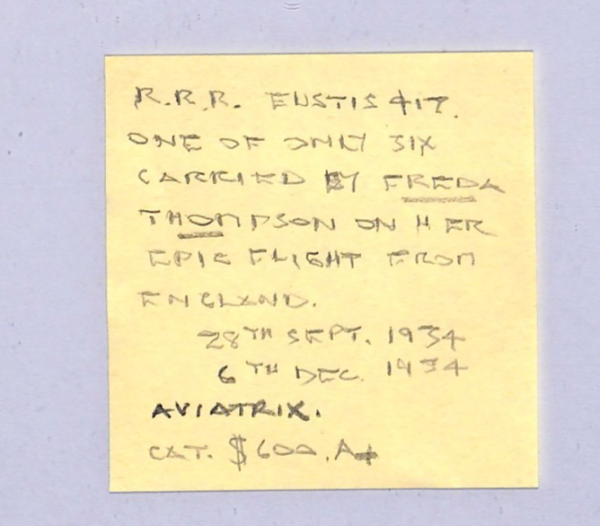 R.R.R. EUSTIS 417.
ONE OF ONLY SIX
CARRIED BY FREDA
THOMPSON ON HER
EPIC FLIGHT FROM
ENGLAND.
28TH SEPT. 1934
6TH DEC. 1934
AVIATRIX.
CAT. $600. A+